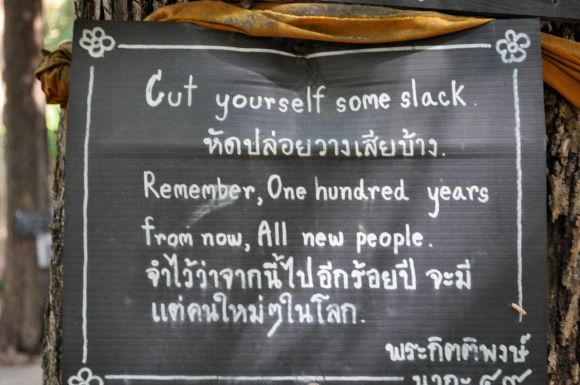 Cut yourself some slack.
หัดปล่อยวางเสียบ้าง.
Remember, One hundred years
from now, All new people.
จำไว้ว่าจากนี้ไปอีกร้อยปี จะมี
แต่คนใหม่ๆในโลก.
พระกิตติพงษ์